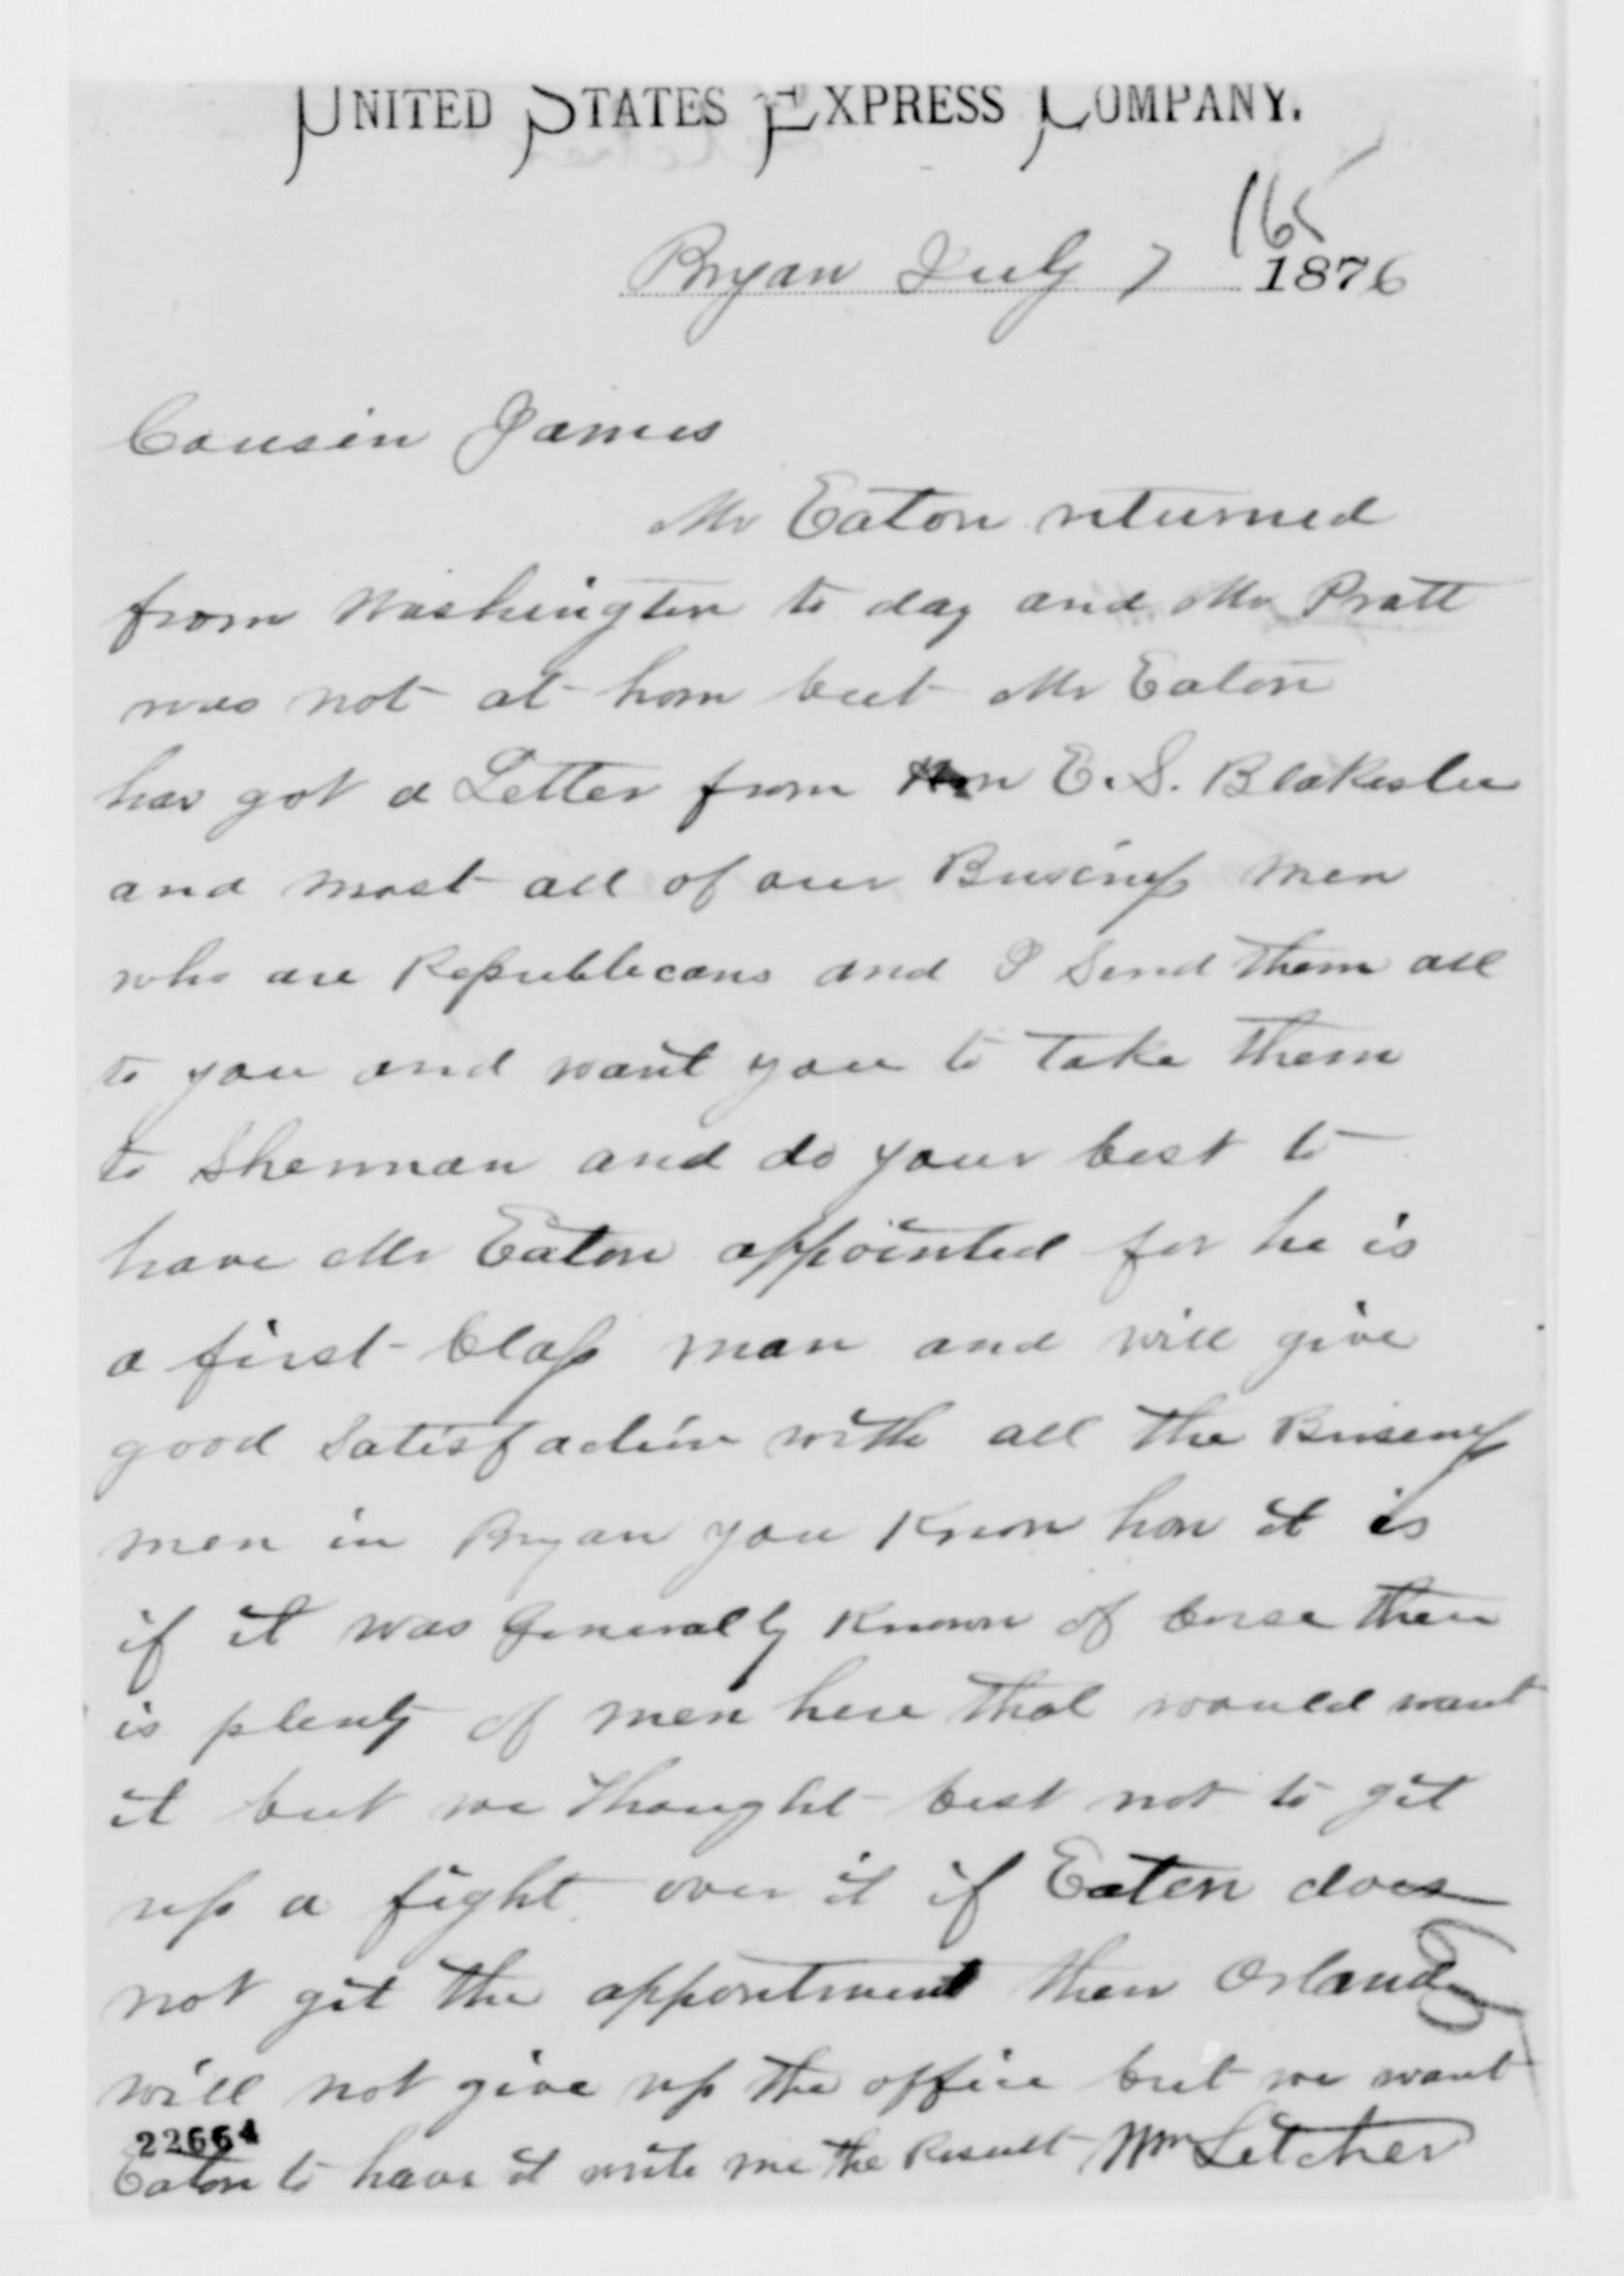 UNITED STATES EXPRESS COMPANY.
165
Bryan July 7 1876
Cousin James
Mr Eaton returned
from Washington to day and Mr Pratt
was not at hom but Mr Eaton
has got a Letter from Hon E. S. Blakeslee
and most all of our Business men
who are Republicans and I Send them all
to you and want you to take them
to Sherman and do your best to
have Mr Eaton appointed for he is
a first-Class man and will give
good Satisfaction with all the Buseness
men in Bryan you Know how it is
if it was Generally Known of Corse there
is plenty of men here that would want
it but we thought best not to git
up a fight over it if Eaton does
not git the appointment then Orlando
will not give up the office but we want
22664
Eaton to have it write me the Result Wm Letcher